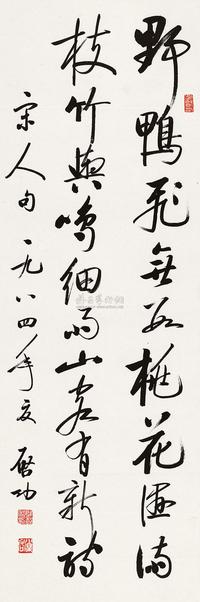 野鴨飛無數桃花濕滿
枝竹輿鳴細雨山客有新詩
宋人句 一九八四年夏 啓功